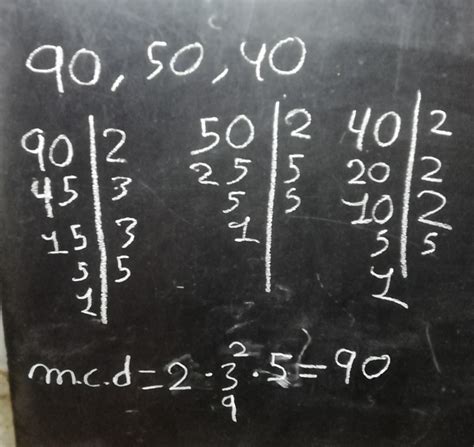 90, 50, 40
90 | 2 50 | 2 40 | 2
45 | 3 25 | 5 20 | 2
15 | 3 5 | 5 10 | 2
5 | 5 1 | 5 | 5
1 | 1
m.c.d = 2 · 3² · 5 = 90
9